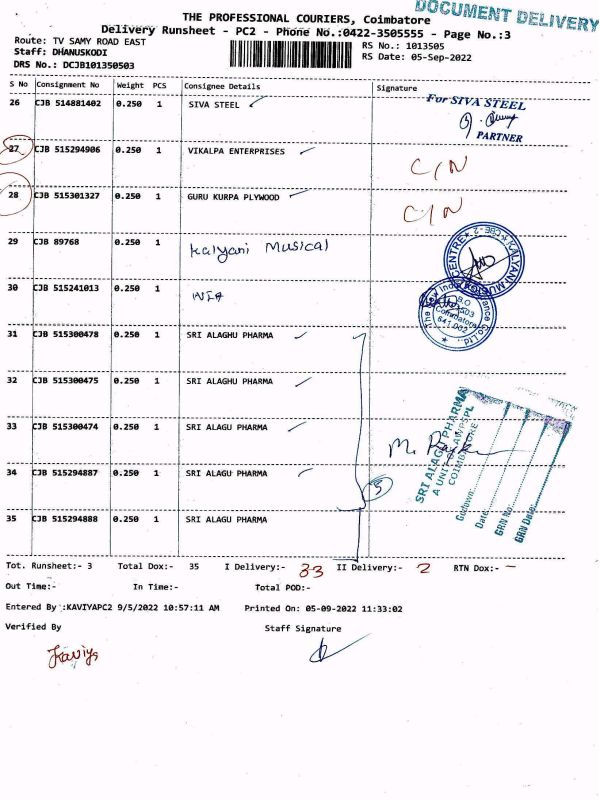 DOCUMENT DELIVERY
THE PROFESSIONAL COURIERS, Coimbatore
Delivery Runsheet - PC2 - Phone No.:0422-3505555 - Page No.:3
Route: TV SAMY ROAD EAST RS No.: 1013505
Staff: DHANUSKODI RS Date: 05-Sep-2022
DRS No.: DCJB101350503
S No Consignment No Weight PCS Consignee Details Signature
26 CJB 514881402 0.250 1 SIVA STEEL
For SIVA STEEL
PARTNER
27 CJB 515294906 0.250 1 VIKALPA ENTERPRISES C/N
28 CJB 515301327 0.250 1 GURU KURPA PLYWOOD C/N
29 CJB 89768 0.250 1 Kalyani Musical
30 CJB 515241013 0.250 1 NIA
31 CJB 515300478 0.250 1 SRI ALAGHU PHARMA
32 CJB 515300475 0.250 1 SRI ALAGHU PHARMA
33 CJB 515300474 0.250 1 SRI ALAGU PHARMA
34 CJB 515294887 0.250 1 SRI ALAGU PHARMA
35 CJB 515294888 0.250 1 SRI ALAGU PHARMA
5
SRI ALAGU PHARMA
COIMBATORE
Godown:
Date:
GRN No:
GRN Date:
Tot. Runsheet:- 3 Total Dox:- 35 I Delivery:- 33 II Delivery:- 2 RTN Dox:- -
Out Time:- In Time:- Total POD:-
Entered By :KAVIYAPC2 9/5/2022 10:57:11 AM Printed On: 05-09-2022 11:33:02
Verified By Staff Signature
Kaviya